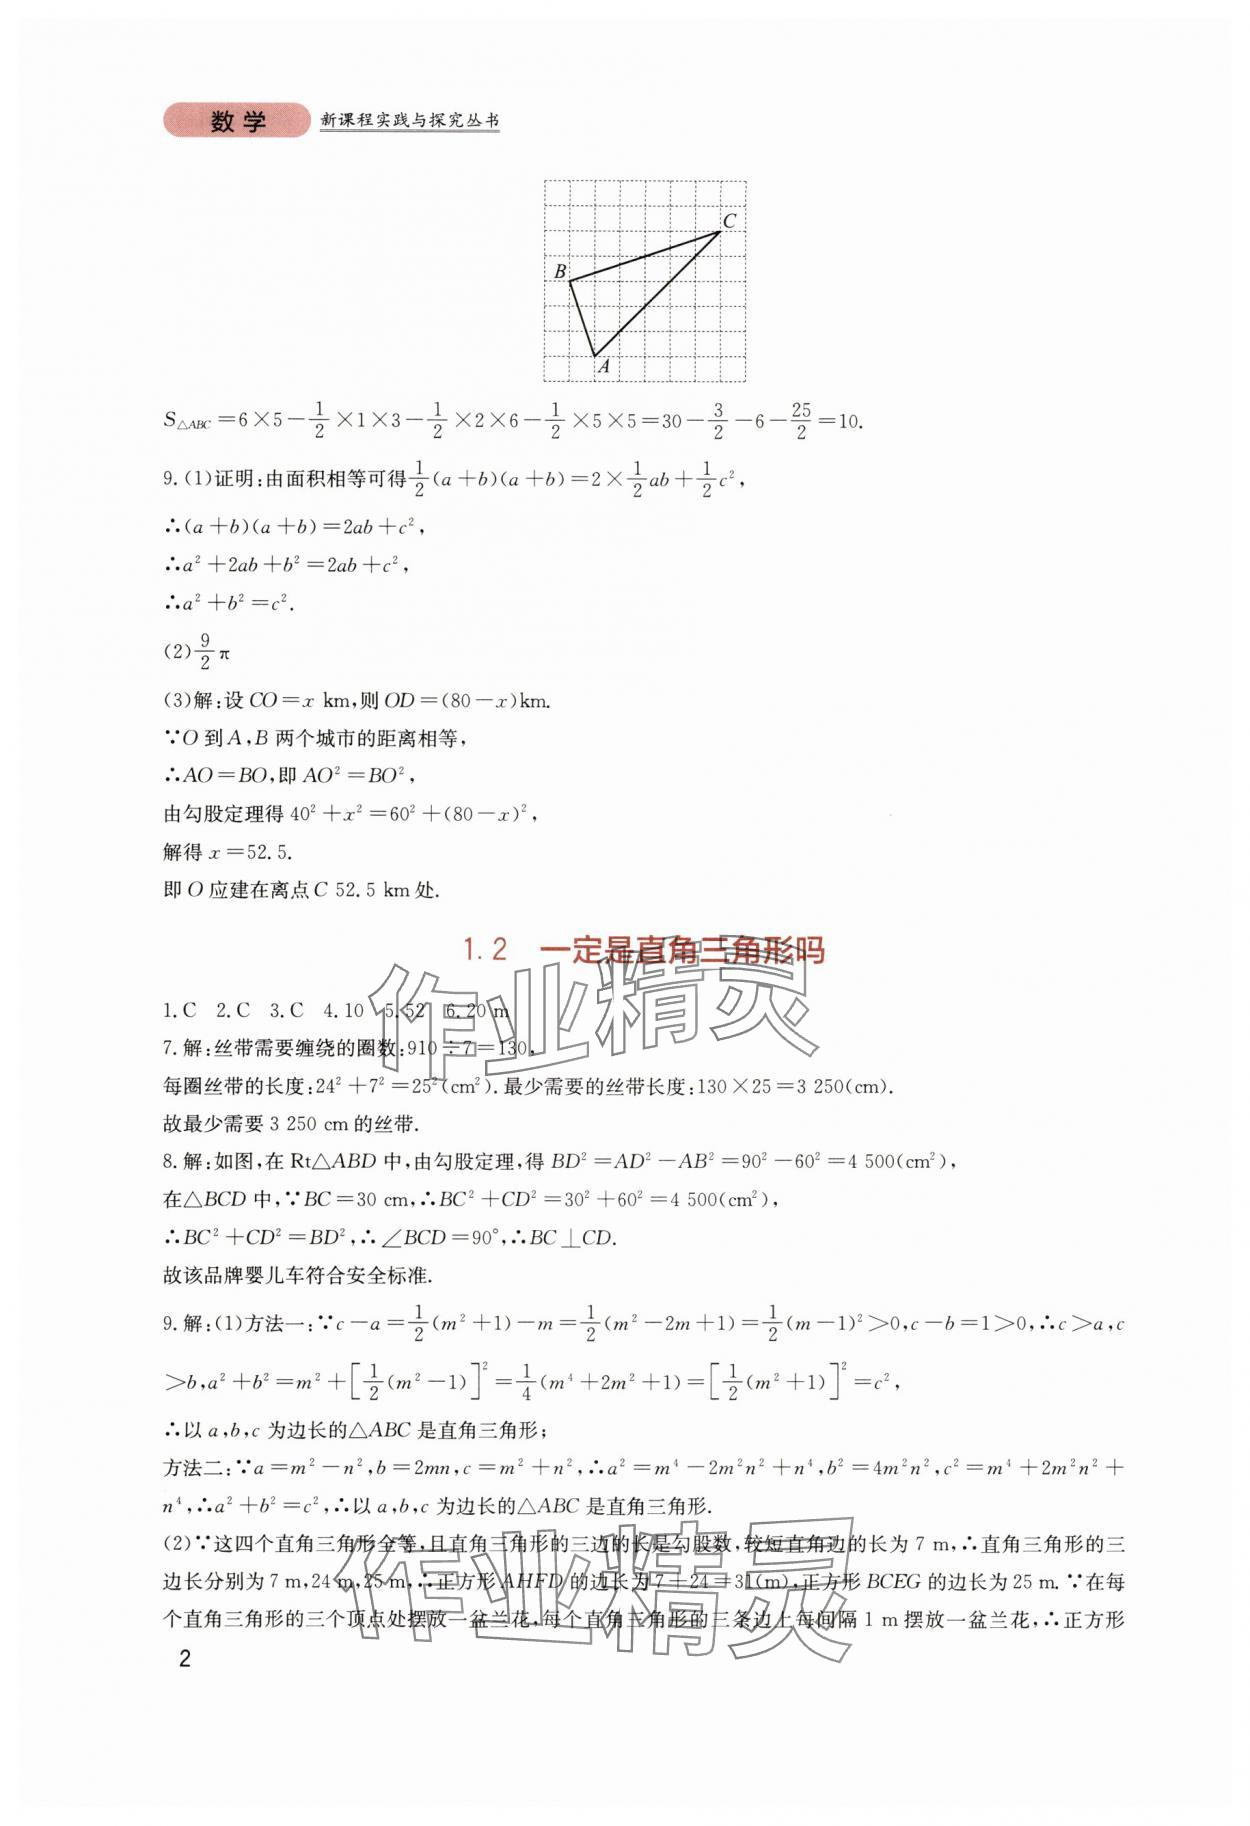 数学 新课程实践与探究丛书
C
B
A
S△ABC=6×5-1/2×1×3-1/2×2×6-1/2×5×5=30-3/2-6-25/2=10.
9.(1)证明:由面积相等可得1/2(a+b)(a+b)=2×1/2ab+1/2c²,
∴(a+b)(a+b)=2ab+c²,
∴a²+2ab+b²=2ab+c²,
∴a²+b²=c².
(2)9/2π
(3)解:设CO=x km,则OD=(80-x)km.
∵O到A,B两个城市的距离相等,
∴AO=BO,即AO²=BO²,
由勾股定理得40²+x²=60²+(80-x)²,
解得x=52.5.
即O应建在离点C 52.5 km处.
1.2 一定是直角三角形吗
1.C 2.C 3.C 4.10 5.52 6.20 m
7.解:丝带需要缠绕的圈数:910÷7=130,
每圈丝带的长度:24²+7²=25²(cm²).最少需要的丝带长度:130×25=3 250(cm).
故最少需要3 250 cm的丝带.
8.解:如图,在Rt△ABD中,由勾股定理,得BD²=AD²-AB²=90²-60²=4 500(cm²),
在△BCD中,∵BC=30 cm,∴BC²+CD²=30²+60²=4 500(cm²),
∴BC²+CD²=BD²,∴∠BCD=90°,∴BC⊥CD.
故该品牌婴儿车符合安全标准.
9.解:(1)方法一:∵c-a=1/2(m²+1)-m=1/2(m²-2m+1)=1/2(m-1)²>0,c-b=1>0,∴c>a,c
>b,a²+b²=m²+[1/2(m²-1)]²=1/4(m⁴+2m²+1)=[1/2(m²+1)]²=c²,
∴以a,b,c为边长的△ABC是直角三角形;
方法二:∵a=m²-n²,b=2mn,c=m²+n²,∴a²=m⁴-2m²n²+n⁴,b²=4m²n²,c²=m⁴+2m²n²+
n⁴,∴a²+b²=c²,∴以a,b,c为边长的△ABC是直角三角形.
(2)∵这四个直角三角形全等,且直角三角形的三边的长是勾股数,较短直角边的长为7 m,∴直角三角形的三
边长分别为7 m,24 m,25 m,∴正方形AHFD的边长为7+24=31(m),正方形BCEG的边长为25 m.∵在每
个直角三角形的三个顶点处摆放一盆兰花,每个直角三角形的三条边上每间隔1 m摆放一盆兰花,∴正方形
2
作业精灵
作业精灵